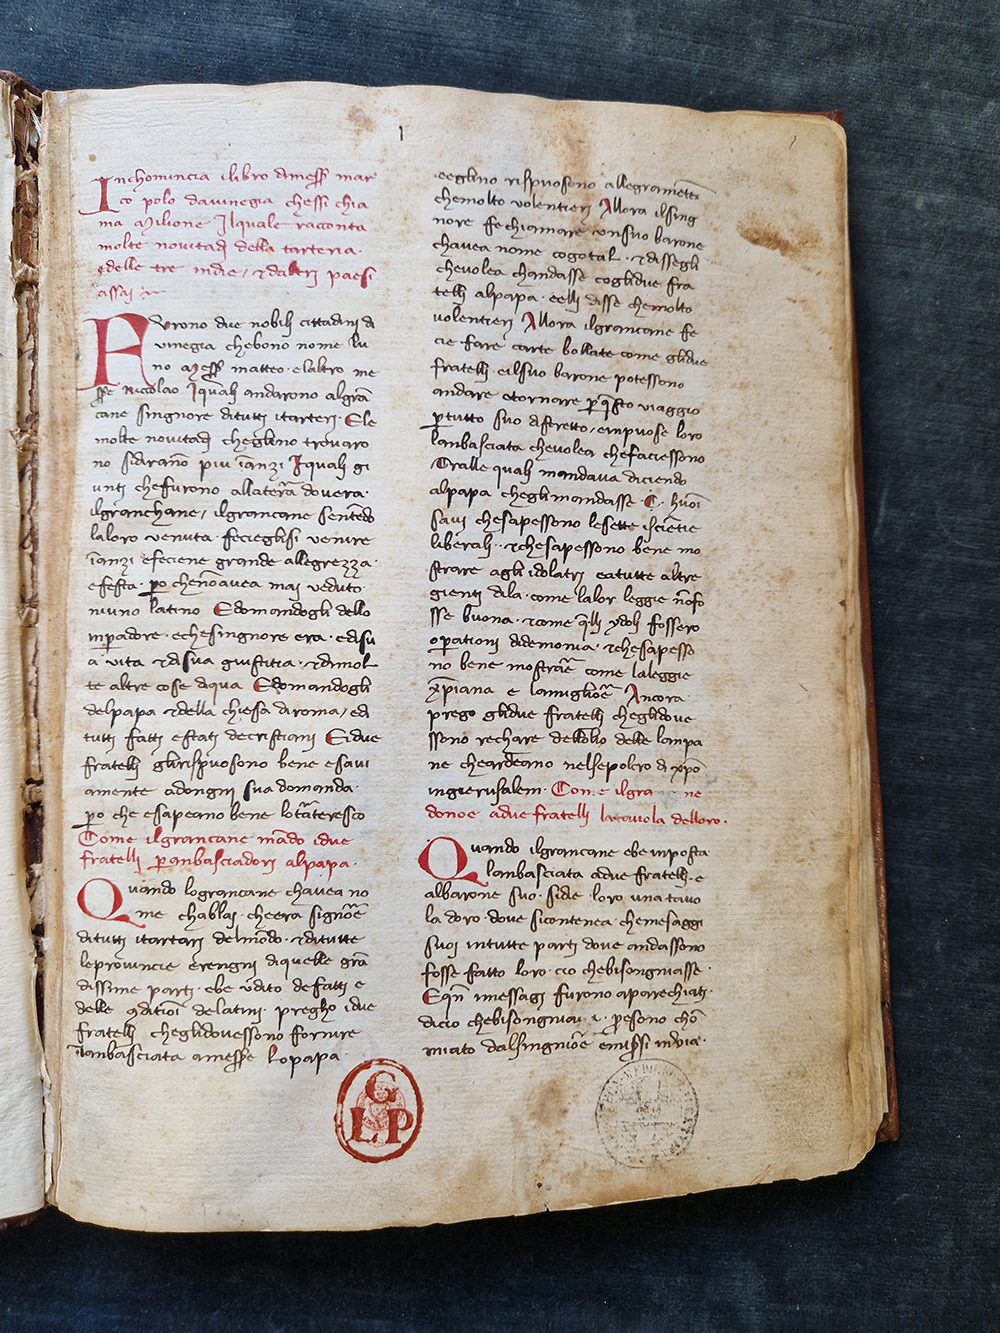 1
Inchomincia ilibro dimess mar
co polo davinegia chessi chia
ma Milione Ilquale racconta
molte novitadj della tarteria.
edelle tre indie, & daltri paesi
assai
Furono due nobilj cittadini di
vinegia chebono nome lu
no Mess matteo. elaltro me
sse Niccolao Iqualj andarono algrā
cane singnore ditutti itarteri. Ele
molte novitadj cheglino trovaro
no sidirano piu īanzi Iqualj gi
unti chefurono allatera dovera.
ilgranchane, ilgrancane sentēdo
laloro venuta. feciegliesi venire
īanzi efeciene grande allegrezza.
efesta. po chenōavea mai veduto
niuno latino Edomandoglj dello
inpadore. echesingnore era. edisu
a vita & disua giustitia. & dimol
te altre cose diqua Edomandoglj
delpapa & della chiesa diroma, edi
tutti fatti estati decristiani Eidue
fratellj glirispuosono bene esavi
amente adongni sua domanda.
po che esapeano bene lotāteresco
Come ilgrancane mādo idue
fratellj p anbasciadorj alpapa.
Quando lograncane chavea no
me chablaj. cheera signōe
ditutti itartari delmōdo. & ditutte
leprovincie erengni diquelle grā
dissime parti. ebe udito defatti e
delle 9ditioī delatini. pregho idue
fratellj cheglidovessono fornire
īanbasciata amesse Lopapa.
eeglino rispuosono allegramēte
chemolto volentieri Allora ilsing
nore fe chiamare unsuo barone
chavea nome cogotal. & dissegli
chevolea chandasse coglidue fra
tellj alpapa. eelli disse chemolto
volentieri Allora ilgrancane fe
cie fare carte bollate come glidue
fratellj. eilsuo barone potessono
andare etornare p qsto viaggio
ptutto suo distretto, einpuose loro
lanbasciata chevolea chefaciessono
Tralle qualj mandava diciendo
alpapa cheglimandasse .C. huoī
savi chesapessono lesette iscietie
liberalj. & chesapessono bene mo
strare aglj idolatri eatutte altre
gienti dila. come lalor leggie nōfo
sse buona. & come qllj ydolj fossero
operationi didemonia. & chesapesso
no bene mostraē come laleggie
xpiana e lamigliōe Ancora
prego glidue fratellj cheglidove
ssono rechare dellolio delle lampa
ne cheardeano nelsepolcro di xpo
ingierusalem. Come ilgra ne
donoe adue fratellj latavola delloro.
Quando ilgrancane ebe inposta
lanbasciata adue fratellj. e
albarone suo. side loro una tavo
la doro. dove sicontenea. chemesaggi
suoi intutte parti dove andassono
fosse fatto loro. cio chebisongniasse.
Eqn imessagi furono aparechiati.
dicio chebisongniavi. presono chō
miato dalsingniōe emissi invia.
G
L P